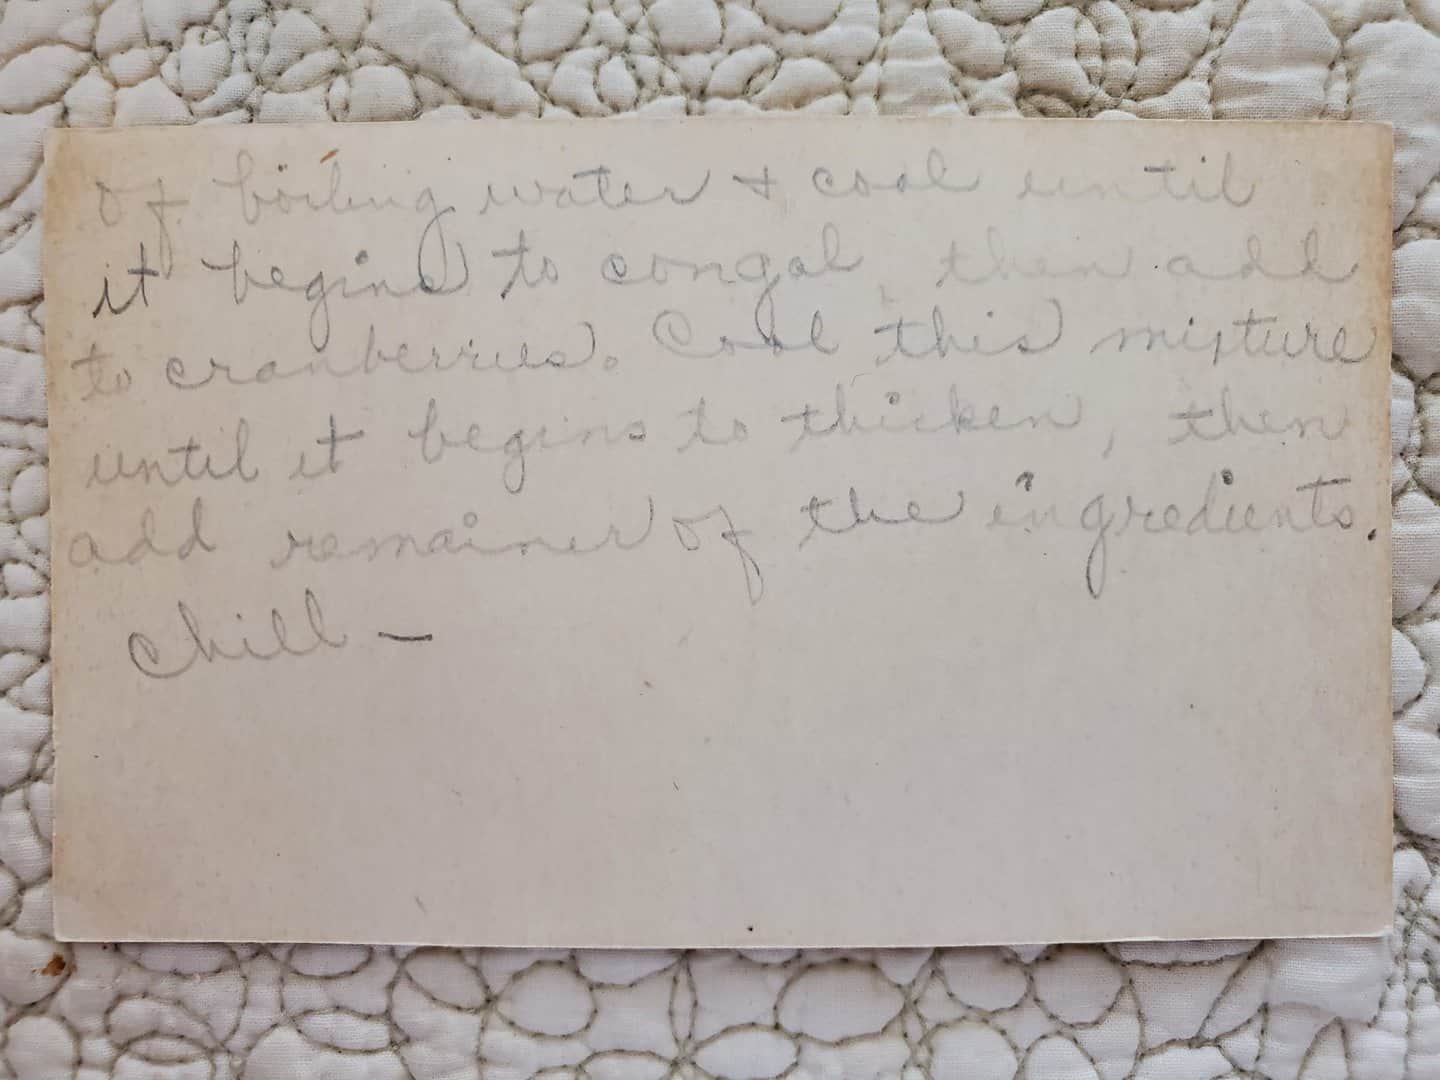 of boiling water + cool until
it begins to congal, then add
to cranberries. Cool this mixture
until it begins to thicken, then
add remainer of the ingredients.
chill –